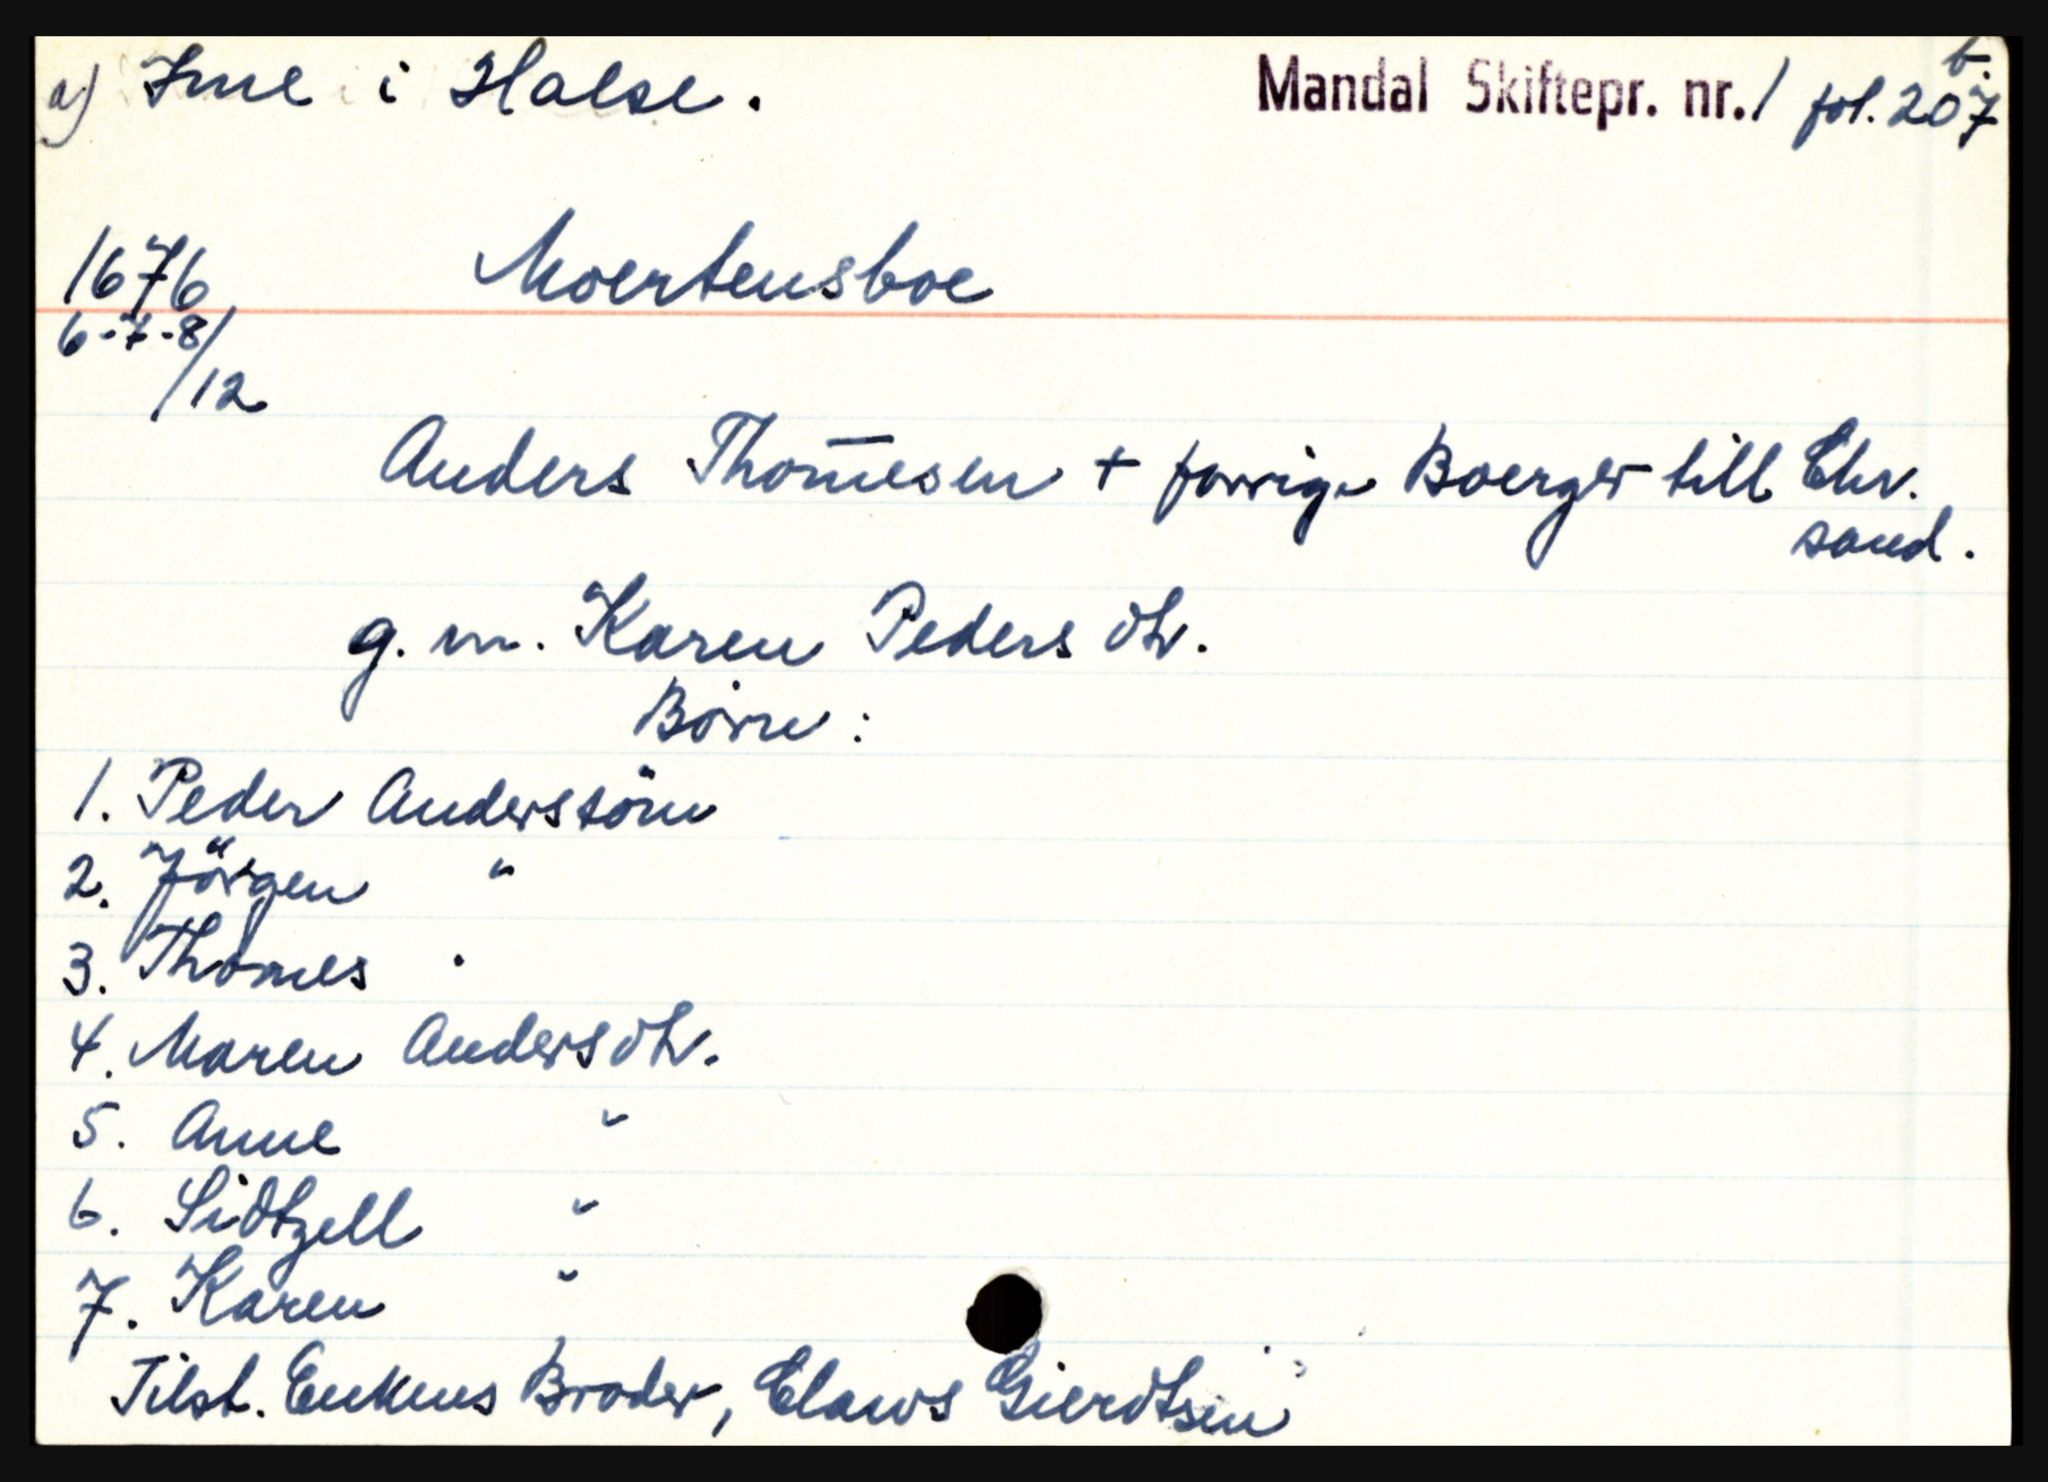 a) Ime i Halse. Mandal Skiftepr. nr. 1 fol. 207 b.
1676 Moertensboe
6-7-8/12
Anders Thom̄esen + forrige Boerger till Chr.
sand.
g. m. Karen Peders dtr.
Börn :
1. Peder Anderssönn
2. Jörgen "
3. Thomes "
4. Maren Andersdtr.
5. Anne "
6. Sidtzell "
7. Karen "
Tilst. Enkens Broder, Claws Gierdtsen